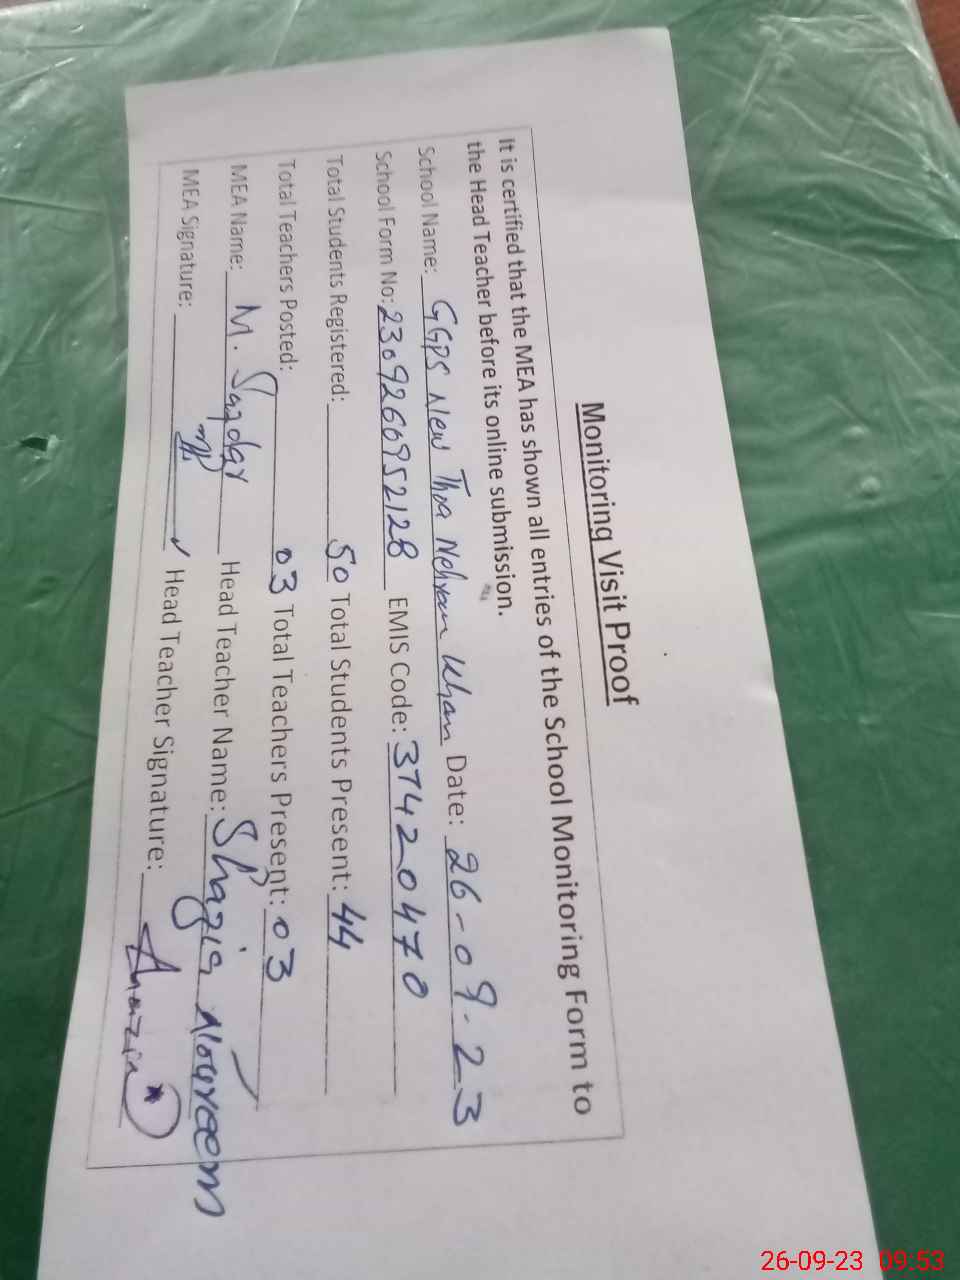 Monitoring Visit Proof
It is certified that the MEA has shown all entries of the School Monitoring Form to
the Head Teacher before its online submission.
School Name: GGPS New Thoa Mehram Khan Date: 26-09-23
School Form No: 2309260952128 EMIS Code: 37420470
Total Students Registered: 50 Total Students Present: 44
Total Teachers Posted: 03 Total Teachers Present: 03
MEA Name: M. Safdar Head Teacher Name: Shazia Noureen
MEA Signature: Head Teacher Signature:
26-09-23 09:53